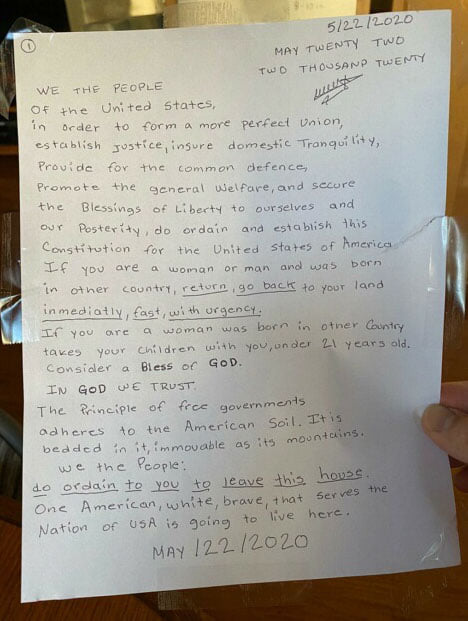 1
5/22/2020
MAY TWENTY TWO
TWO THOUSAND TWENTY
WE THE PEOPLE
Of the United States,
in order to form a more perfect Union,
establish justice, insure domestic Tranquility,
Provide for the common defence,
Promote the general Welfare, and secure
the Blessings of Liberty to ourselves and
our Posterity, do ordain and establish this
Constitution for the United States of America
If you are a woman or man and was born
in other country, return, go back to your land
inmediatly, fast, with urgency.
If you are a woman was born in other Country
takes your children with you, under 21 years old.
Consider a Bless of GOD.
IN GOD WE TRUST.
The Principle of free governments
adheres to the American Soil. It is
bedded in it, immovable as its mountains.
we the People:
do ordain to you to leave this house.
One American, white, brave, that serves the
Nation of USA is going to live here.
MAY /22/2020